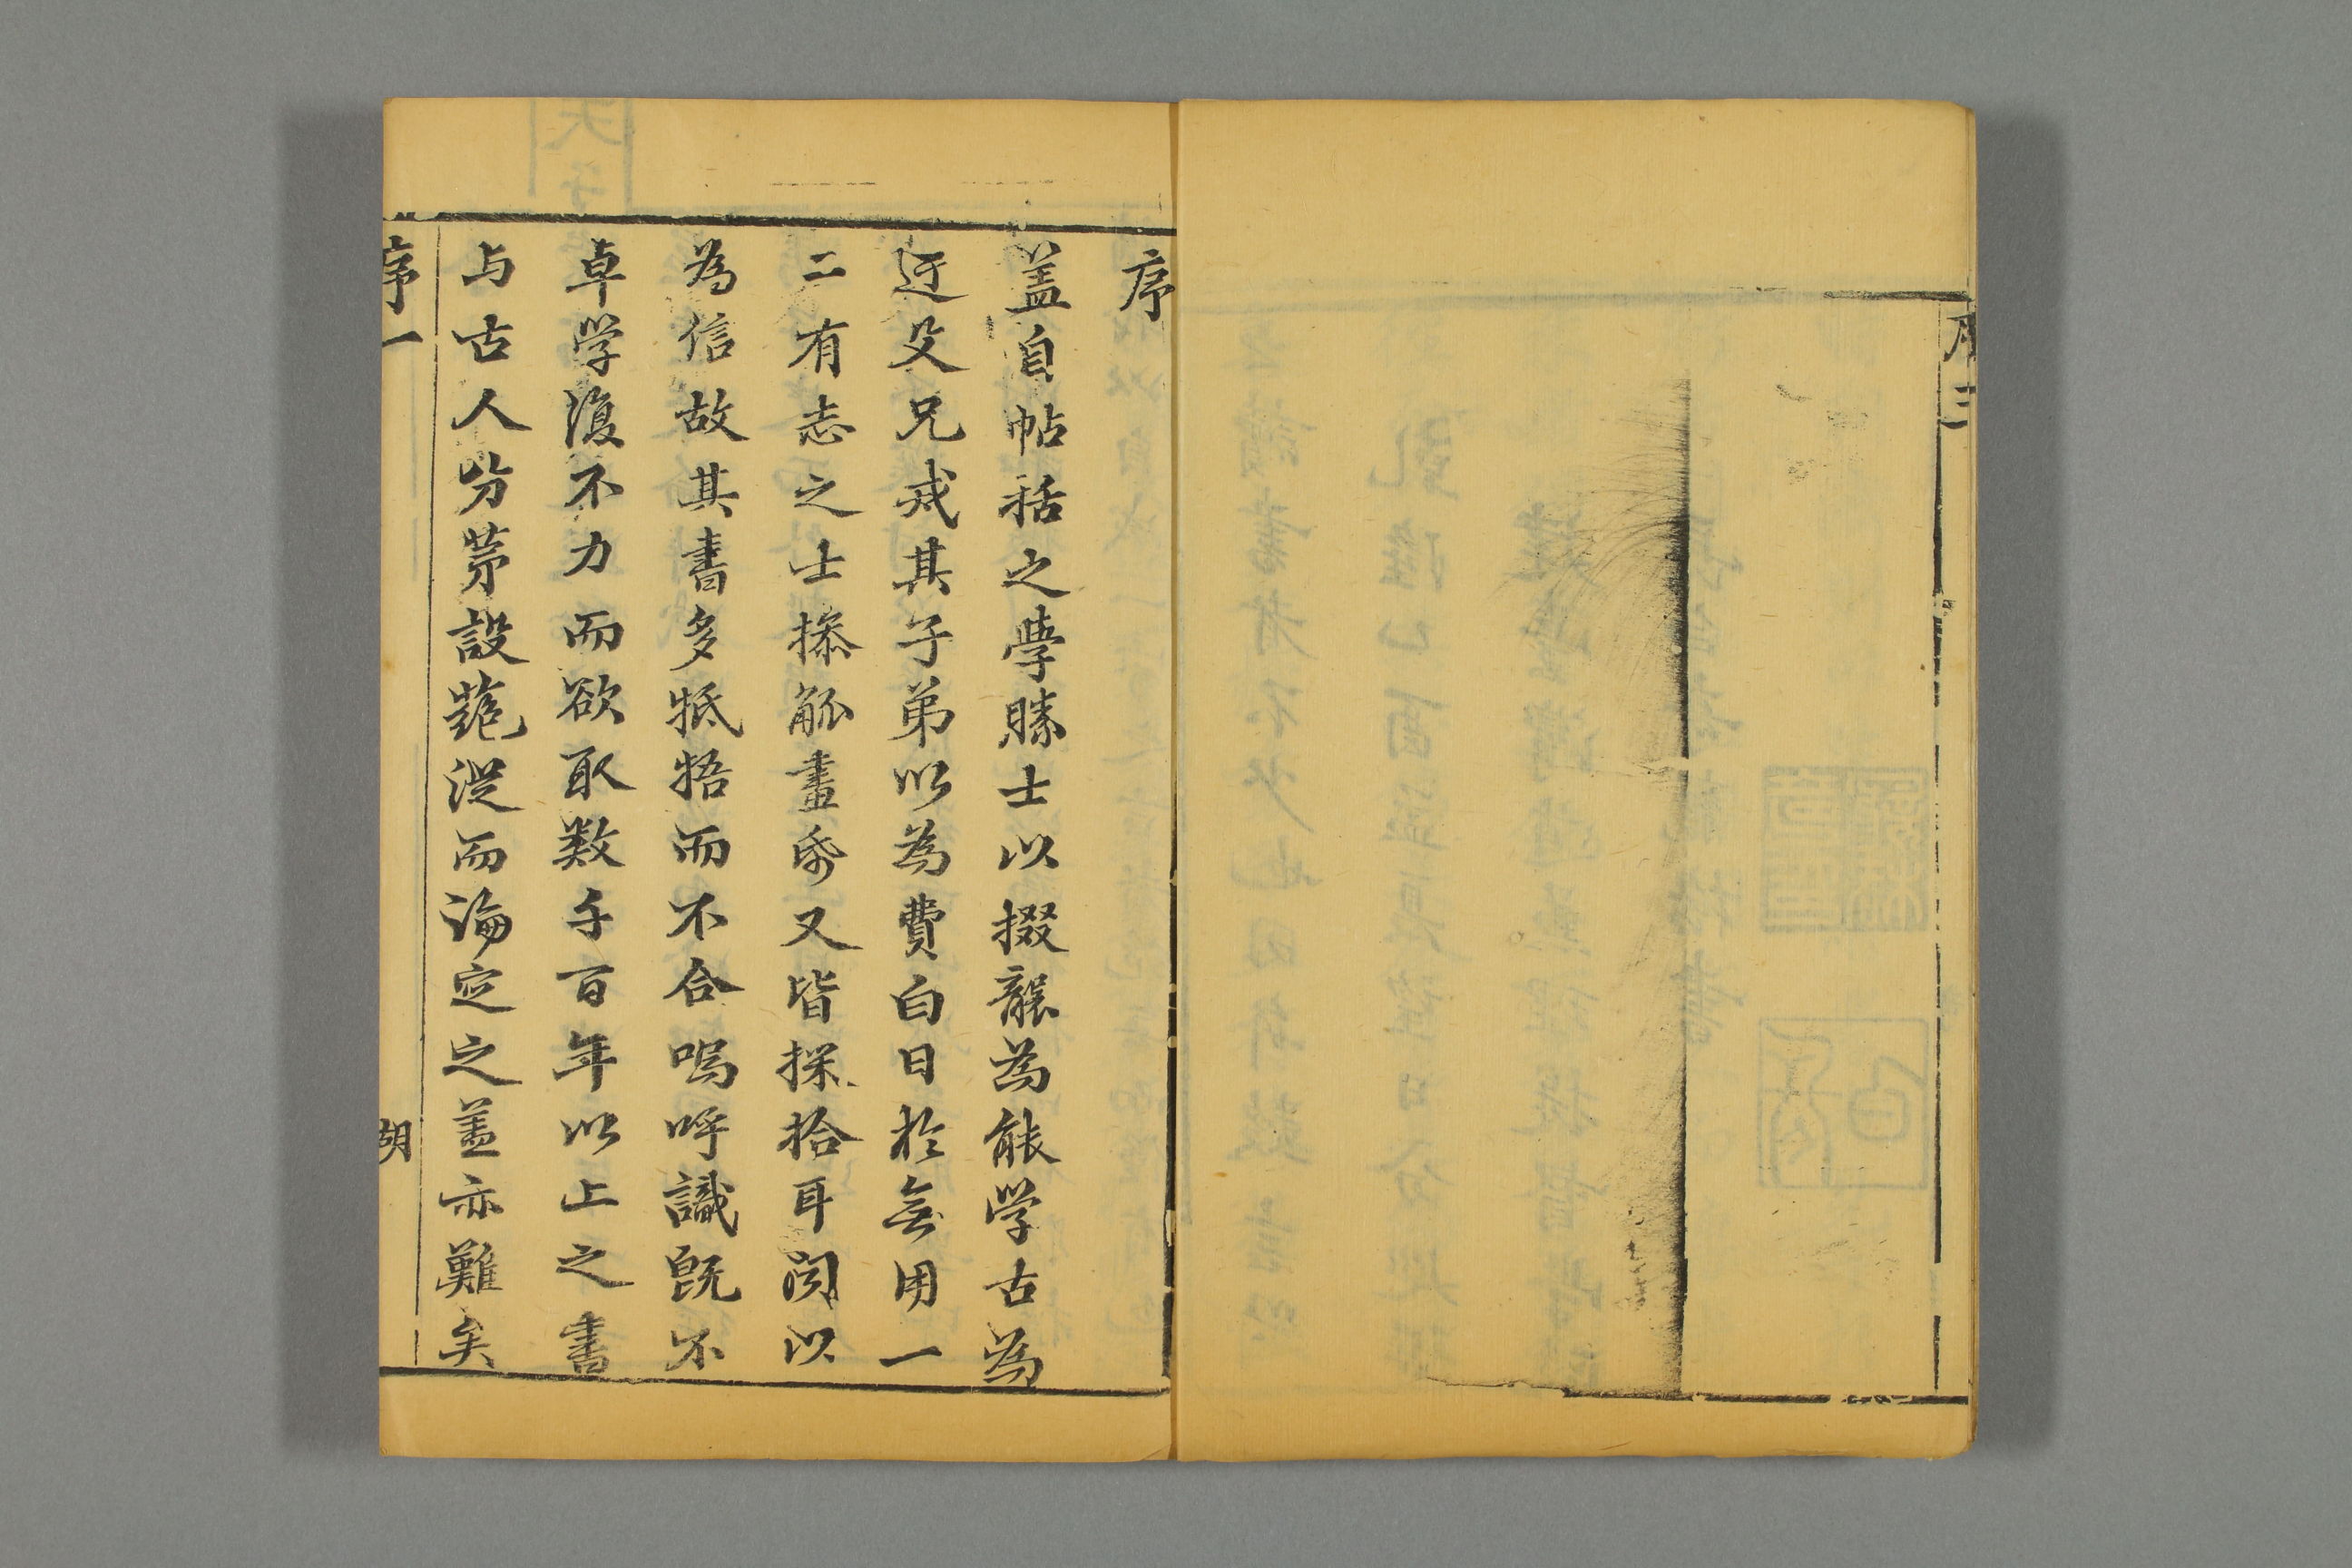 序三
序
盖自帖括之學勝士以掇襲為能学古為
迂父兄戒其子弟以為費白日於無用一
二有志之士操觚畫帋又皆採拾耳闻以
為信故其書多牴牾而不合嗚呼識既不
卓学復不力而欲取数千百年以上之書
与古人分茅設蕝從而論定之盖亦難矣
序一
胡